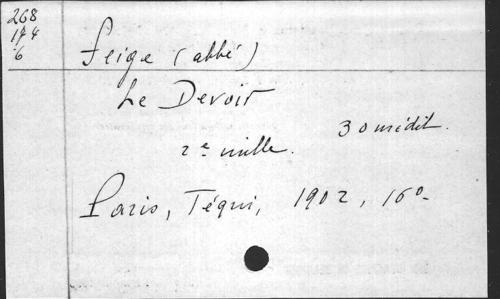 268
174
6
Feige (abbé)
Le Devoir
30 médit.
2e mille.
Paris, Téqui, 1902, 16°.